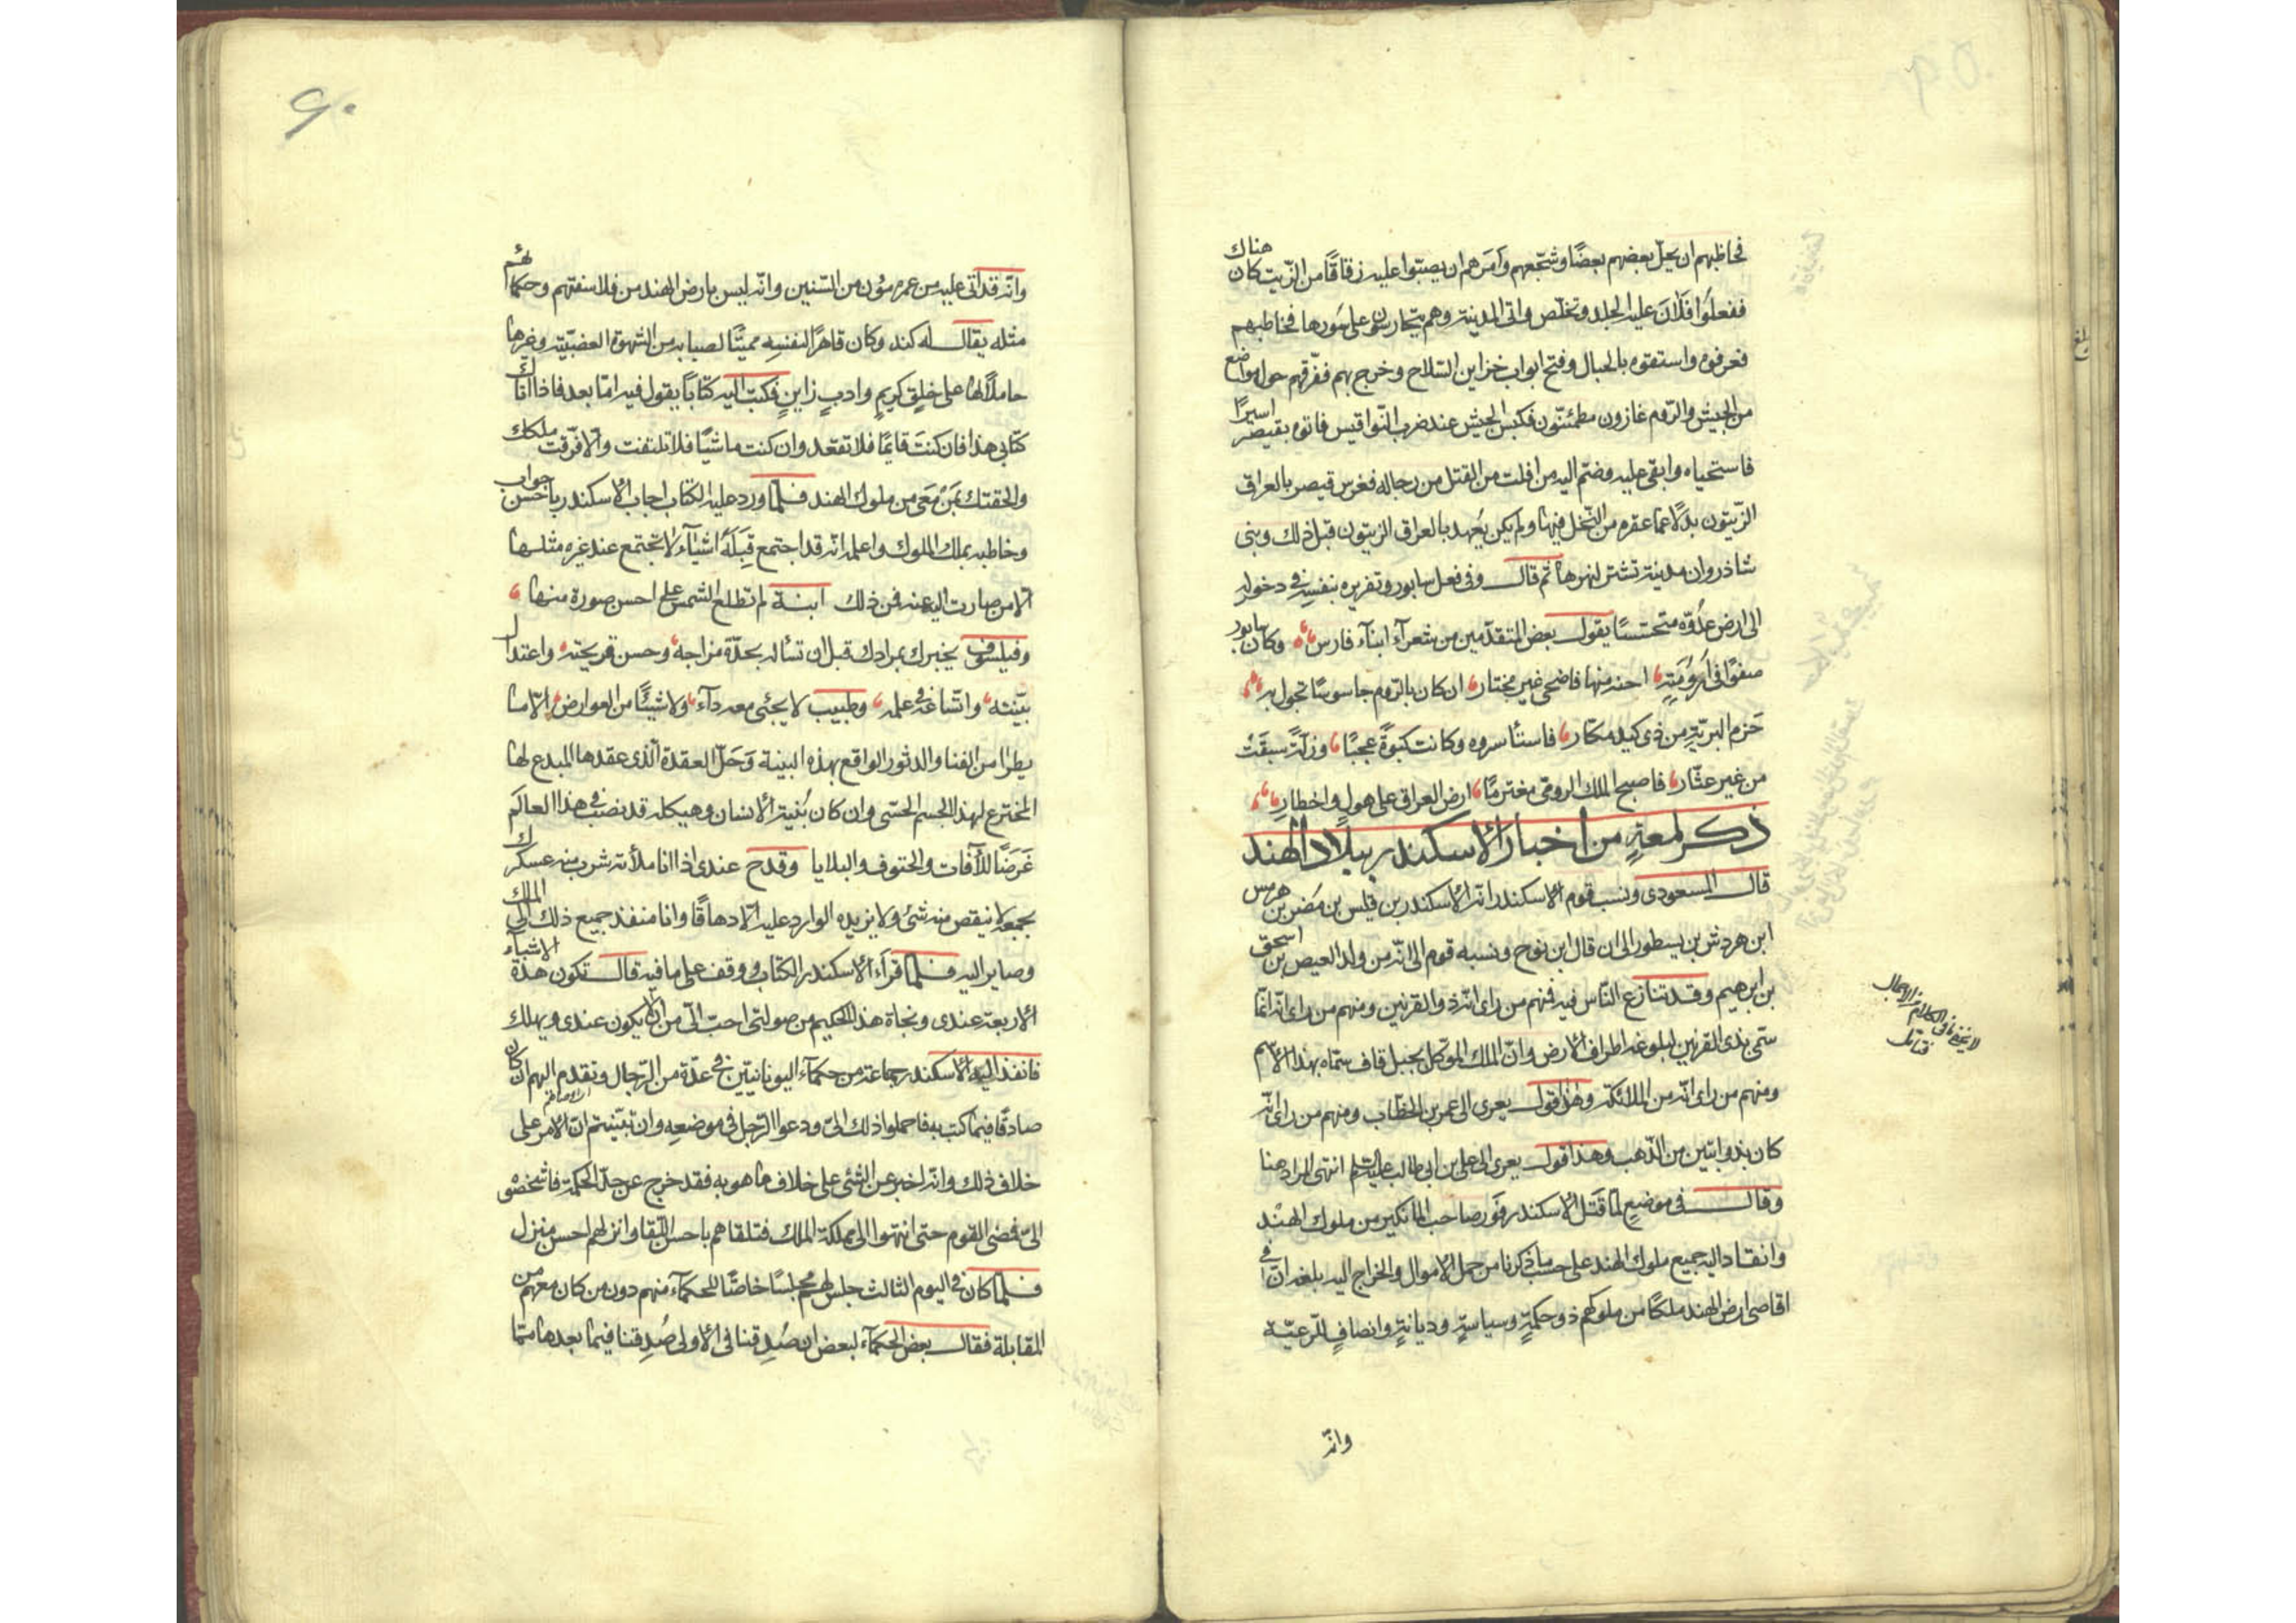 فخاطبهم ان يحل بعضهم بعضًا وشجعهم وامرهم ان يصبوا عليه زقاقًا من الزيت كان هناك
ففعلوا فلان عليه الجلد وتخلص واتى المدينة وهم يتحارسون على سورها فخاطبهم
فعرفوه واستقوه بالحبال وفتح ابواب خزاين السلاح وخرج بهم ففرقهم حول مواضع
من الجيش والروم غازون مطمئنون فكبس الجيش عند ضرب النواقيس فاتوه بقيصر اسيرًا
فاستحياه وابقى عليه وضم اليه من افلت من القتل من رجاله فغرس قيصر بالعراق
الزيتون بدلًا عما عقره من النخل فيها ولم يكن يعهد بالعراق الزيتون قبل ذلك وبنى
شاذروان مدينة تشتر لنهرها ثم قال وفى فعل سابور وتغريره بنفسه فى دخوله
الى ارض عدوه متحسسًا يقول بعض المتقدمين من شعرآء ابنآء فارس وكان سابور
صفوًا فى ارومته اختير منها فاضحى غير مختار ان كان بالروم جاسوسًا تجول به
حزم البرية من ذى كيد مكار فاستأسروه وكانت كبوة عجبًا وزلة سبقت
من غير عثار فاصبح الملك الرومى مغترمًا ارض العراق على هول واخطار
ذكر لمعة من اخبار الاسكندر ببلاد الهند
قال المسعودى ونسب قوم الاسكندر انه الاسكندر بن فيلس بن مضر بن هرمس
ابن هردش بن يسطور الى ان قال ابن نوح ونسبه قوم الى انه من ولد العيص بن اسحق
بن ابرهيم وقد تنازع الناس فيه فمنهم من راى انه ذو القرنين ومنهم من راى انه انما
سمى بذى القرنين لبلوغه اطراف الارض وان الملك الموكل بجبل قاف سماه بهذا الاسم
ومنهم من راى انه من الملائكة وهذا قول يعزى الى عمر بن الخطاب ومنهم من راى انه
كان بذوابتين من الذهب وهذا قول يعزى الى على بن ابى طالب عليه السلم انتهى المراد هنا
وقال فى موضع لما قتل الاسكندر فور صاحب المانكير من ملوك الهند
وانقاد اليه جميع ملوك الهند على حسب ما ذكرنا من حمل الاموال والخراج اليه بلغه ان فى
اقاصى ارض الهند ملكًا من ملوكهم ذو حكمة وسياسة وديانة وانصاف للرعية
وانه
لا يخفى ما فى الكلام من الاجمال
فتامل
٩٠
وانه قد اتى عليه من عمره مئون من السنين وانه ليس بارض الهند من فلاسفتهم وحكمائهم
مثله يقال له كند وكان قاهرًا لنفسه مميتًا لصباه من الشهوة الغضبية وغيرها
حاملًا لها على خلق كريم وادب زاين فكتب اليه كتابًا يقول فيه اما بعد فاذا اتاك
كتابى هذا فان كنت قايمًا فلا تقعد وان كنت ماشيًا فلا تلتفت والا فرقت ملكك
والحقتك بمن مضى من ملوك الهند فلما ورد عليه الكتاب اجاب الاسكندر باحسن جواب
وخاطبه بملك الملوك واعلمه انه قد اجتمع قبله اشيآء لا تجتمع عند غيره مثلها
الا من صارت اليه عنه فمن ذلك ابنة لم تطلع الشمس على احسن صورة منها
وفيلسوف يخبرك بمرادك قبل ان تسأله بحدة مزاجه وحسن قريحته واعتدال
بنيته واتساعه فى علمه وطبيب لا يخشى معه دآء ولا شيئًا من العوارض الا ما
يطرا من الفنا والدثور الواقع بهذه البنية وحل العقدة الذى عقدها المبدع لها
المخترع لهذا الجسم الحسى وان كان بنية الانسان وهيكله قد نصب فى هذا العالم
غرضًا للآفات والحتوف والبلايا وقدح عندى اذا انا ملأته شرب منه عسكرك
بجمعه لا ينقص منه شئ ولا يزيده الوارد عليه الا دهاقًا وانا منفذ جميع ذلك الى الملك
وصاير اليه فلما قرأ الاسكندر الكتاب ووقف على ما فيه قال تكون هذه الاشيآء
الاربعة عندى ونجاة هذا الحكيم من صولتى احب الى من ان لا يكون عندى ويهلك
فانفذ اليه الاسكندر جماعة من حكمآء اليونانيين فى عدة من الرجال وتقدم اليهم ان كان
صادقًا فيما كتب به فاحملوا ذلك الى ودعوا الرجل فى موضعه وان تبينتم ان الامر على
خلاف ذلك وانه اخبر عن الشئ على خلاف ما هو به فقد خرج عن حد الحكمة فاشخصوه
الى فمضى القوم حتى انتهوا الى مملكة الملك فتلقاهم باحسن اللقا وانزلهم احسن منزل
فلما كان فى اليوم الثالث جلس لهم مجلسًا خاصًا للحكمآء منهم دون من كان معهم من
المقابلة فقال بعض الحكمآء لبعض ان صدقنا فى الاولى صدقنا فيما بعدها مما